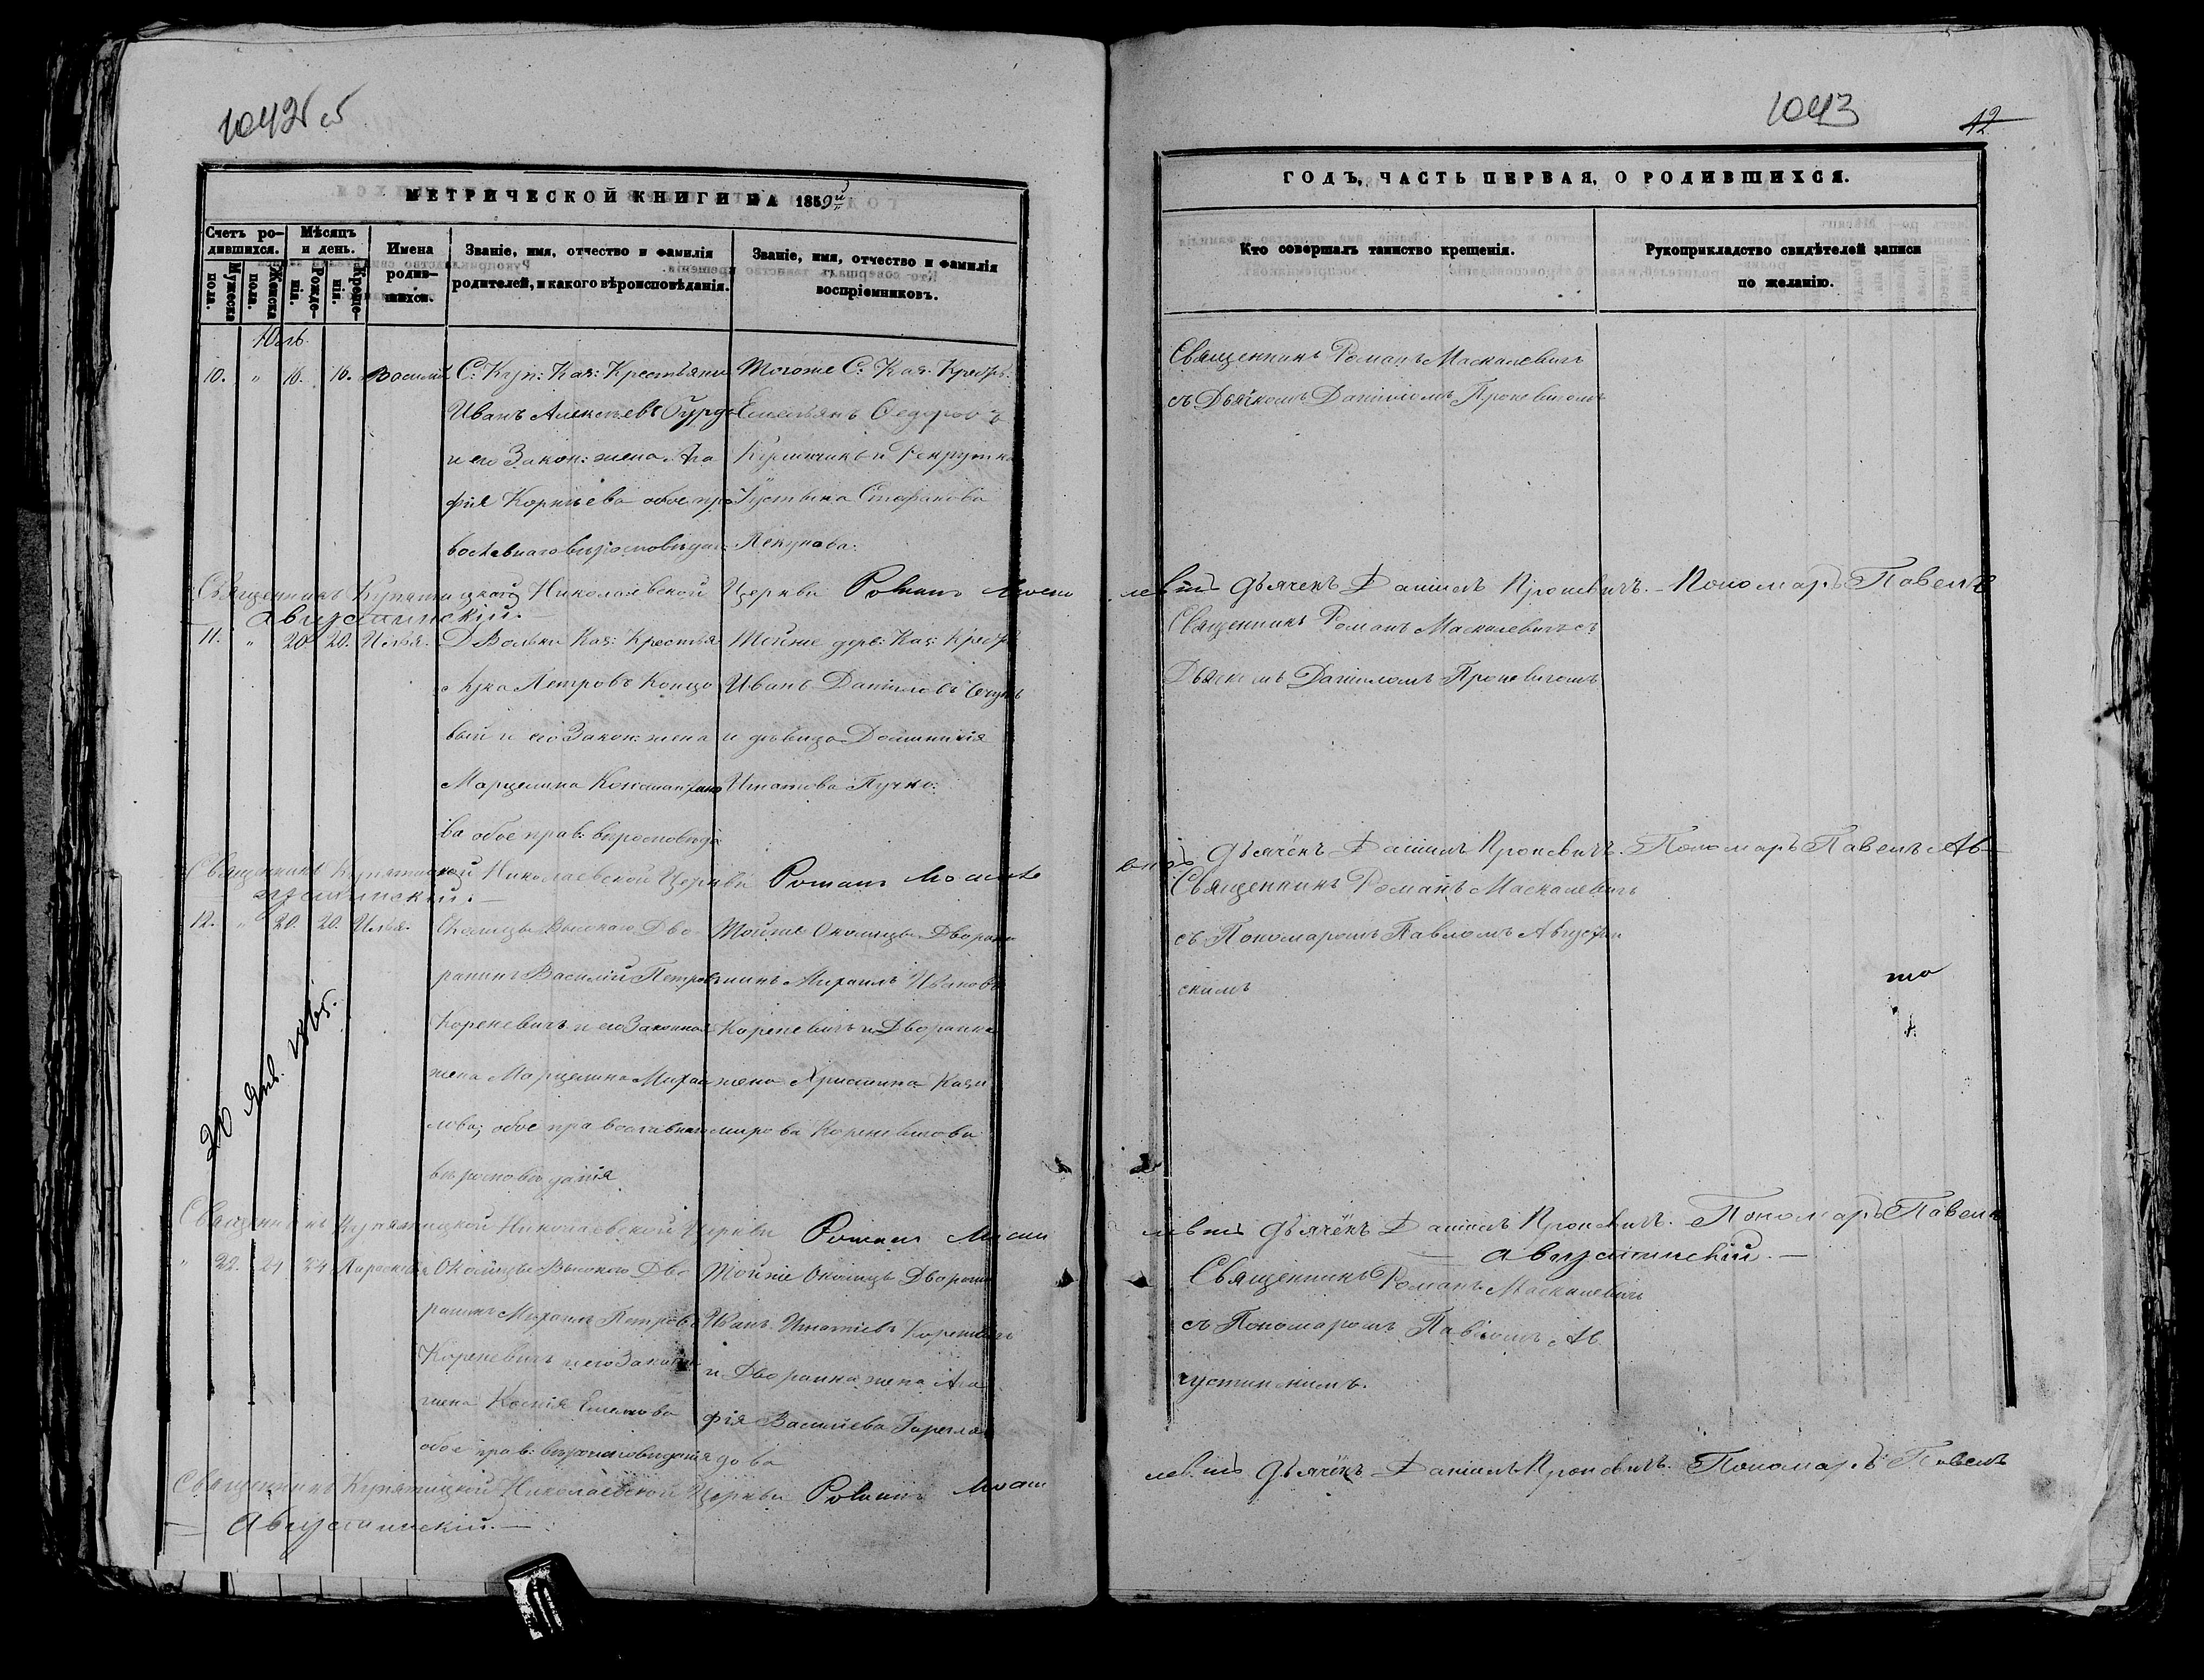 1042 об
МЕТРИЧЕСКОЙ КНИГИ НА 1859й
Счетъ ро-
дившихся.
Мужеска
пола.
Женска
пола.
Мѣсяцъ
и день.
Рожде-
нія.
Креще-
нія.
Имена
родив-
шихся.
Званіе, имя, отчество и фамилія
родителей, и какого вѣроисповѣданія.
Званіе, имя, отчество и фамилія
воспріемниковъ.
Юль
10. " 16. 16. Василій
С. Куп: Каз: Крестьяни
Иванъ Алексѣевъ
и его Закон: жена Ага
фія Корнѣева обое пра
вославнаго вѣроисповѣдан:
Тогоже С. Каз. Крест:
Емельянъ Ѳедоровъ
и Рекрутка
Устинья Стефанова
Пекунова.
Священникъ Купятицкой Николаевской Церкви Романъ Моска
Августинскій.
11. " 20. 20. Илья.
Д Вольки Каз: Крестья
Лука Петровъ Концо
вый и его Закон: жена
Марцелина Констант
ва обое прав. вѣроисповѣд
Тойже дер: Каз: Крест
Иванъ Даниловъ
и дѣвица Доминикія
Игнатова Пучко.
Священникъ Купятицкой Николаевской Церкви Романъ Москале
густинскій.
12. " 20. 20. Илья.
Околицы Высокаго Дво
ранинъ Василій Петровъ
Кореневичъ и его Законная
жена Марцелина Михаи
лова; обое православнаго
вѣроисповѣданія
Тойже Околицы Дворяни
нинъ Михаилъ Ивановъ
Кореневичъ и Дворянка
жена Христина Кази
мирова Кореневичова
20 Янв. 1865.
Священникъ Купятицкой Николаевской Церкви Романъ Моска
" 22. 24 24 Параскевія
Околицы Высокаго Дво
ранинъ Михаилъ Петровъ
Кореневичъ и его Законн
жена Ксенія Емельянова
обое прав. вѣроисповѣданія
Тойже Околицы Дворянин
Иванъ Игнатіевъ Кореневичъ
и Дворянка жена Ага
фія Васильева Гарегля
дова
Священникъ Купятицкой Николаевской Церкви Романъ Моска
Августинскій.
1043
12
ГОДЪ, ЧАСТЬ ПЕРВАЯ, О РОДИВШИХСЯ.
Кто совершалъ таинство крещенія.
Рукоприкладство свидѣтелей записи
по желанію.
Священникъ Романъ Маскалевичъ
съ Дьячкомъ Даніиломъ Проневичомъ
левичъ дьячекъ Даніилъ Проневичъ. Пономаръ Павелъ
Священникъ Романъ Маскалевичъ съ
Дьячкомъ Даніиломъ Проневичомъ
дьячекъ Даніилъ Проневичъ. Пономаръ Павелъ Ав-
Священникъ Романъ Маскалевичъ
съ Пономаромъ Павломъ Августин
скимъ
левичъ дьячекъ Даніилъ Проневичъ. Пономаръ Павелъ
Августинскій.
Священникъ Романъ Маскалевичъ
съ Пономаромъ Павломъ Ав
густинскимъ.
левичъ дьячекъ Даніилъ Проневичъ. Пономаръ Павелъ